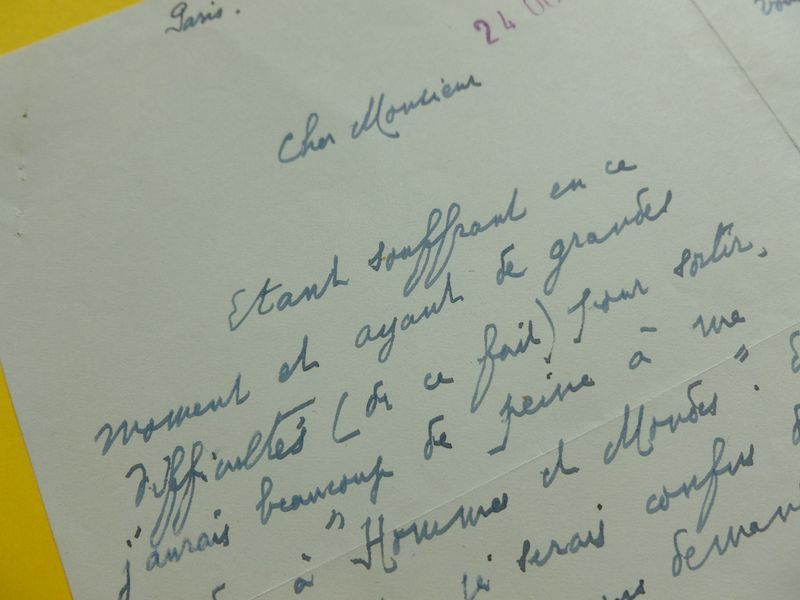 Paris.
24
Cher Monsieur
Etant souffrant en ce
moment et ayant de grandes
difficultés (de ce fait) pour sortir,
j'aurais beaucoup de peine à me
à "Hommes et Mondes".
si serais confus